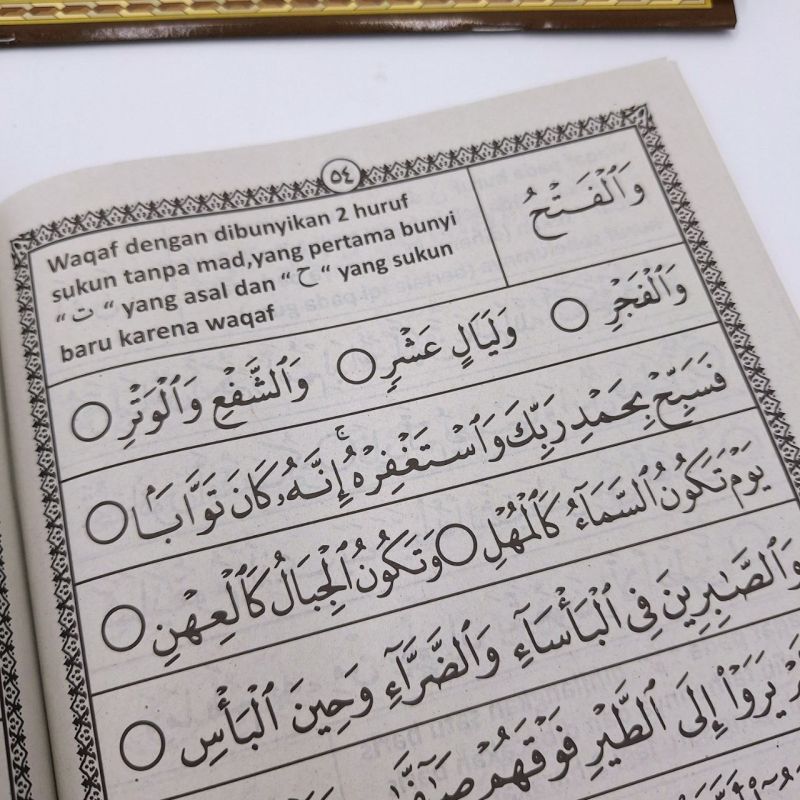 ٥٤
Waqaf dengan dibunyikan 2 huruf
sukun tanpa mad,yang pertama bunyi
“ ت “ yang asal dan “ ح “ yang sukun
baru karena waqaf
وَٱلْفَتْحُ
وَٱلْفَجْرِ ○ وَلَيَالٍ عَشْرٍ ○ وَٱلشَّفْعِ وَٱلْوَتْرِ ○
فَسَبِّحْ بِحَمْدِ رَبِّكَ وَٱسْتَغْفِرْهُ ۚ إِنَّهُۥ كَانَ تَوَّابًا ○
يَوْمَ تَكُونُ ٱلسَّمَآءُ كَٱلْمُهْلِ ○ وَتَكُونُ ٱلْجِبَالُ كَٱلْعِهْنِ ○
وَٱلصَّٰبِرِينَ فِى ٱلْبَأْسَآءِ وَٱلضَّرَّآءِ وَحِينَ ٱلْبَأْسِ ○
يَرَوْا۟ إِلَى ٱلطَّيْرِ فَوْقَهُمْ صَٰٓفَّٰتٍ